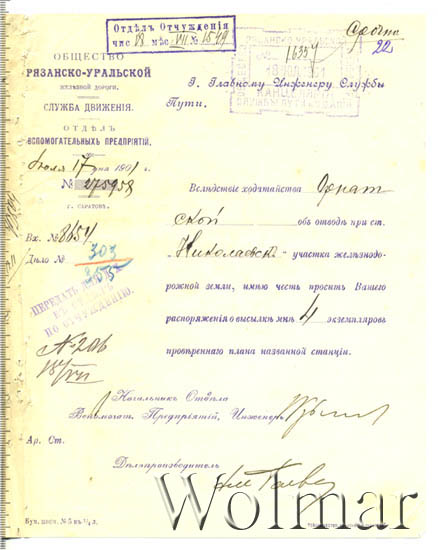 Срочно
22
Отдѣлъ Отчужденія
чис 18 мѣс VII № 1549
ОБЩЕСТВО
РЯЗАНСКО-УРАЛЬСКОЙ
желѣзной дороги.
СЛУЖБА ДВИЖЕНІЯ.
ОТДѢЛЪ
ВСПОМОГАТЕЛЬНЫХЪ ПРЕДПРІЯТІЙ.
Іюля 17 дня 1901 г.
№ 275958
г. САРАТОВЪ.
Вх. № 8654
Дѣло № 303
ПЕРЕДАТЬ
ПО ОТЧУЖДЕНІЮ
№ 206
18/VII
Г. Главному Инженеру Службы
Пути.
Вслѣдствіе ходатайства
ской объ отводѣ при ст.
Николаевскъ - участка желѣзнодо-
рожной земли, имѣю честь просить Вашего
распоряженія о высылкѣ мнѣ 4 экземпляровъ
провѣреннаго плана названной станціи.
Начальникъ Отдѣла
Вспомогат. Предпріятій, Инженеръ
Ар. Ст.
Дѣлопроизводитель
Wolmar